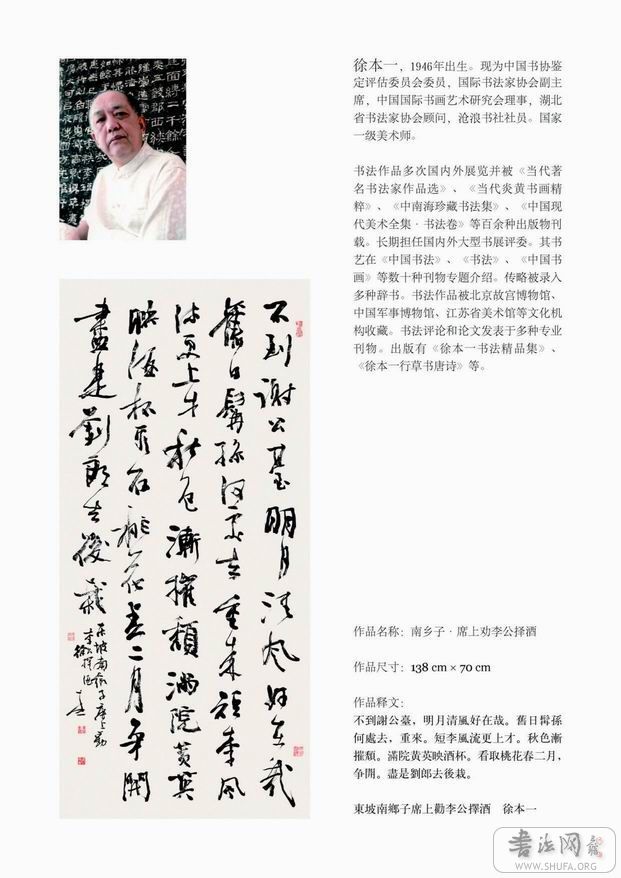 徐本一，1946年出生。现为中国书协鉴
定评估委员会委员，国际书法家协会副主
席，中国国际书画艺术研究会理事，湖北
省书法家协会顾问，沧浪书社社员。国家
一级美术师。
书法作品多次国内外展览并被《当代著
名书法家作品选》、《当代炎黄书画精
粹》、《中南海珍藏书法集》、《中国现
代美术全集·书法卷》等百余种出版物刊
载。长期担任国内外大型书展评委。其书
艺在《中国书法》、《书法》、《中国书
画》等数十种刊物专题介绍。传略被录入
多种辞书。书法作品被北京故宫博物馆、
中国军事博物馆、江苏省美术馆等文化机
构收藏。书法评论和论文发表于多种专业
刊物。出版有《徐本一书法精品集》、
《徐本一行草书唐诗》等。
不到謝公臺明月清風好在哉
舊日髯孫何處去重來短李風
流更上才秋色漸摧頹滿院黃英
映酒杯看取桃花春二月爭開
盡是劉郎去後栽
東坡南鄉子席上勸
李公擇酒
徐本一
作品名称：南乡子·席上劝李公择酒
作品尺寸：138 cm × 70 cm
作品释文：
不到謝公臺，明月清風好在哉。舊日髯孫
何處去，重來。短李風流更上才。秋色漸
摧頽。滿院黄英映酒杯。看取桃花春二月，
争開。盡是劉郎去後栽。
東坡南鄉子席上勸李公擇酒　徐本一
书法网
WWW.SHUFA.ORG